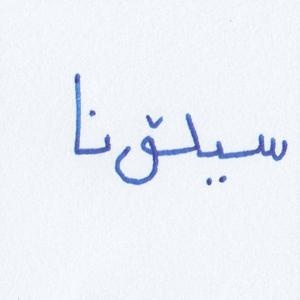 سيلۆنا